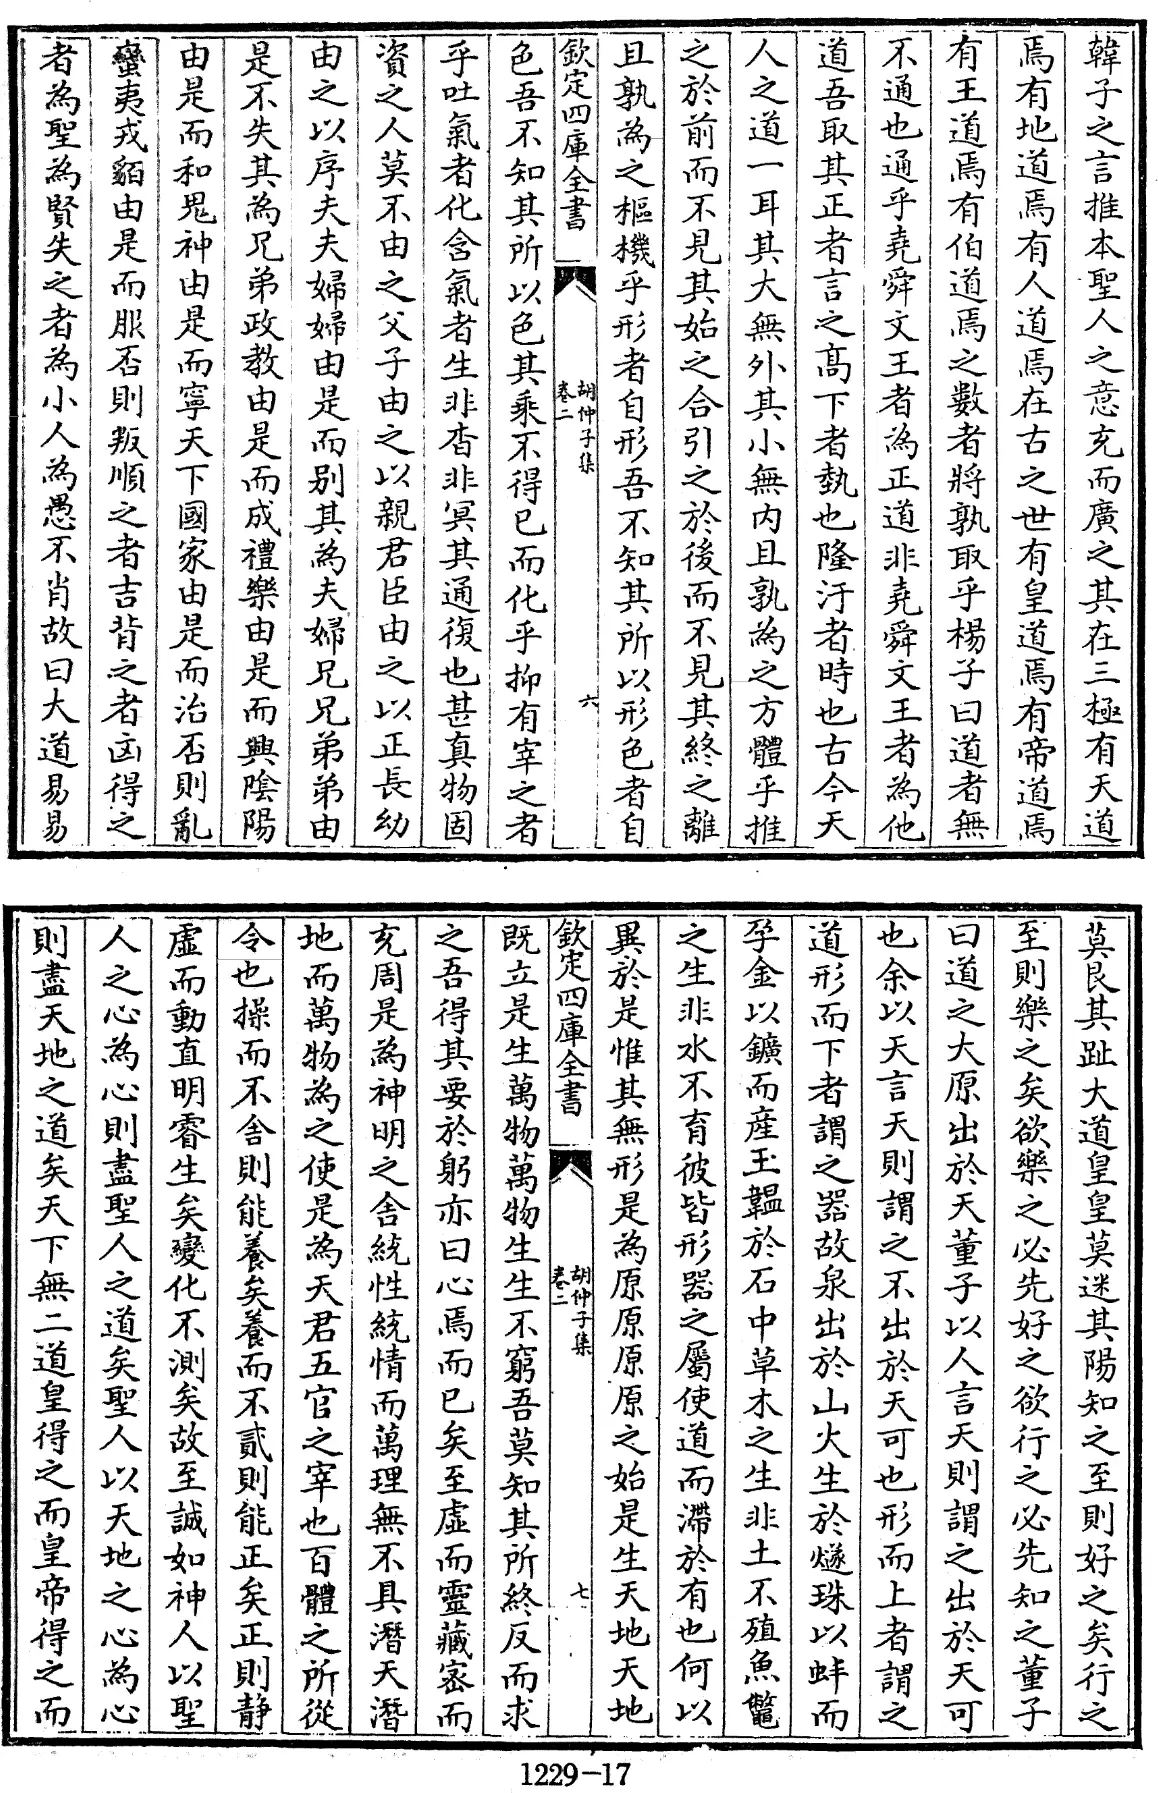 韓子之言推本聖人之意充而廣之其在三極有天道
焉有地道焉有人道焉在古之世有皇道焉有帝道焉
有王道焉有伯道焉之數者將孰取乎楊子曰道者無
不通也通乎堯舜文王者為正道非堯舜文王者為他
道吾取其正者言之髙下者埶也隆汙者時也古今天
人之道一耳其大無外其小無内且孰為之方體乎推
之於前而不見其始之合引之於後而不見其終之離
且孰為之樞機乎形者自形吾不知其所以形色者自
欽定四庫全書
胡仲子集
卷二
六
色吾不知其所以色其乘不得已而化乎抑有宰之者
乎吐氣者化含氣者生非杳非冥其通復也甚真物固
資之人莫不由之父子由之以親君臣由之以正長幼
由之以序夫夫婦婦由是而别其為夫婦兄兄弟弟由
是不失其為兄弟政教由是而成禮樂由是而興陰陽
由是而和鬼神由是而寧天下國家由是而治否則亂
蠻夷戎貊由是而服否則叛順之者吉背之者凶得之
者為聖為賢失之者為小人為愚不肖故曰大道易易
莫艮其趾大道皇皇莫迷其陽知之至則好之矣行之
至則樂之矣欲樂之必先好之欲行之必先知之董子
曰道之大原出於天董子以人言天則謂之出於天可
也余以天言天則謂之不出於天可也形而上者謂之
道形而下者謂之器故泉出於山火生於燧珠以蚌而
孕金以鑛而産玉韞於石中草木之生非土不殖魚鼈
之生非水不育彼皆形器之屬使道而滯於有也何以
異於是惟其無形是為原原原原之始是生天地天地
欽定四庫全書
胡仲子集
卷二
七
既立是生萬物萬物生生不窮吾莫知其所終反而求
之吾得其要於躬亦曰心焉而已矣至虛而靈藏宻而
充周是為神明之舍統性統情而萬理無不具潛天潛
地而萬物為之使是為天君五官之宰也百體之所從
令也操而不舍則能養矣養而不貳則能正矣正則静
虛而動直明睿生矣變化不測矣故至誠如神人以聖
人之心為心則盡聖人之道矣聖人以天地之心為心
則盡天地之道矣天下無二道皇得之而皇帝得之而
1229-17